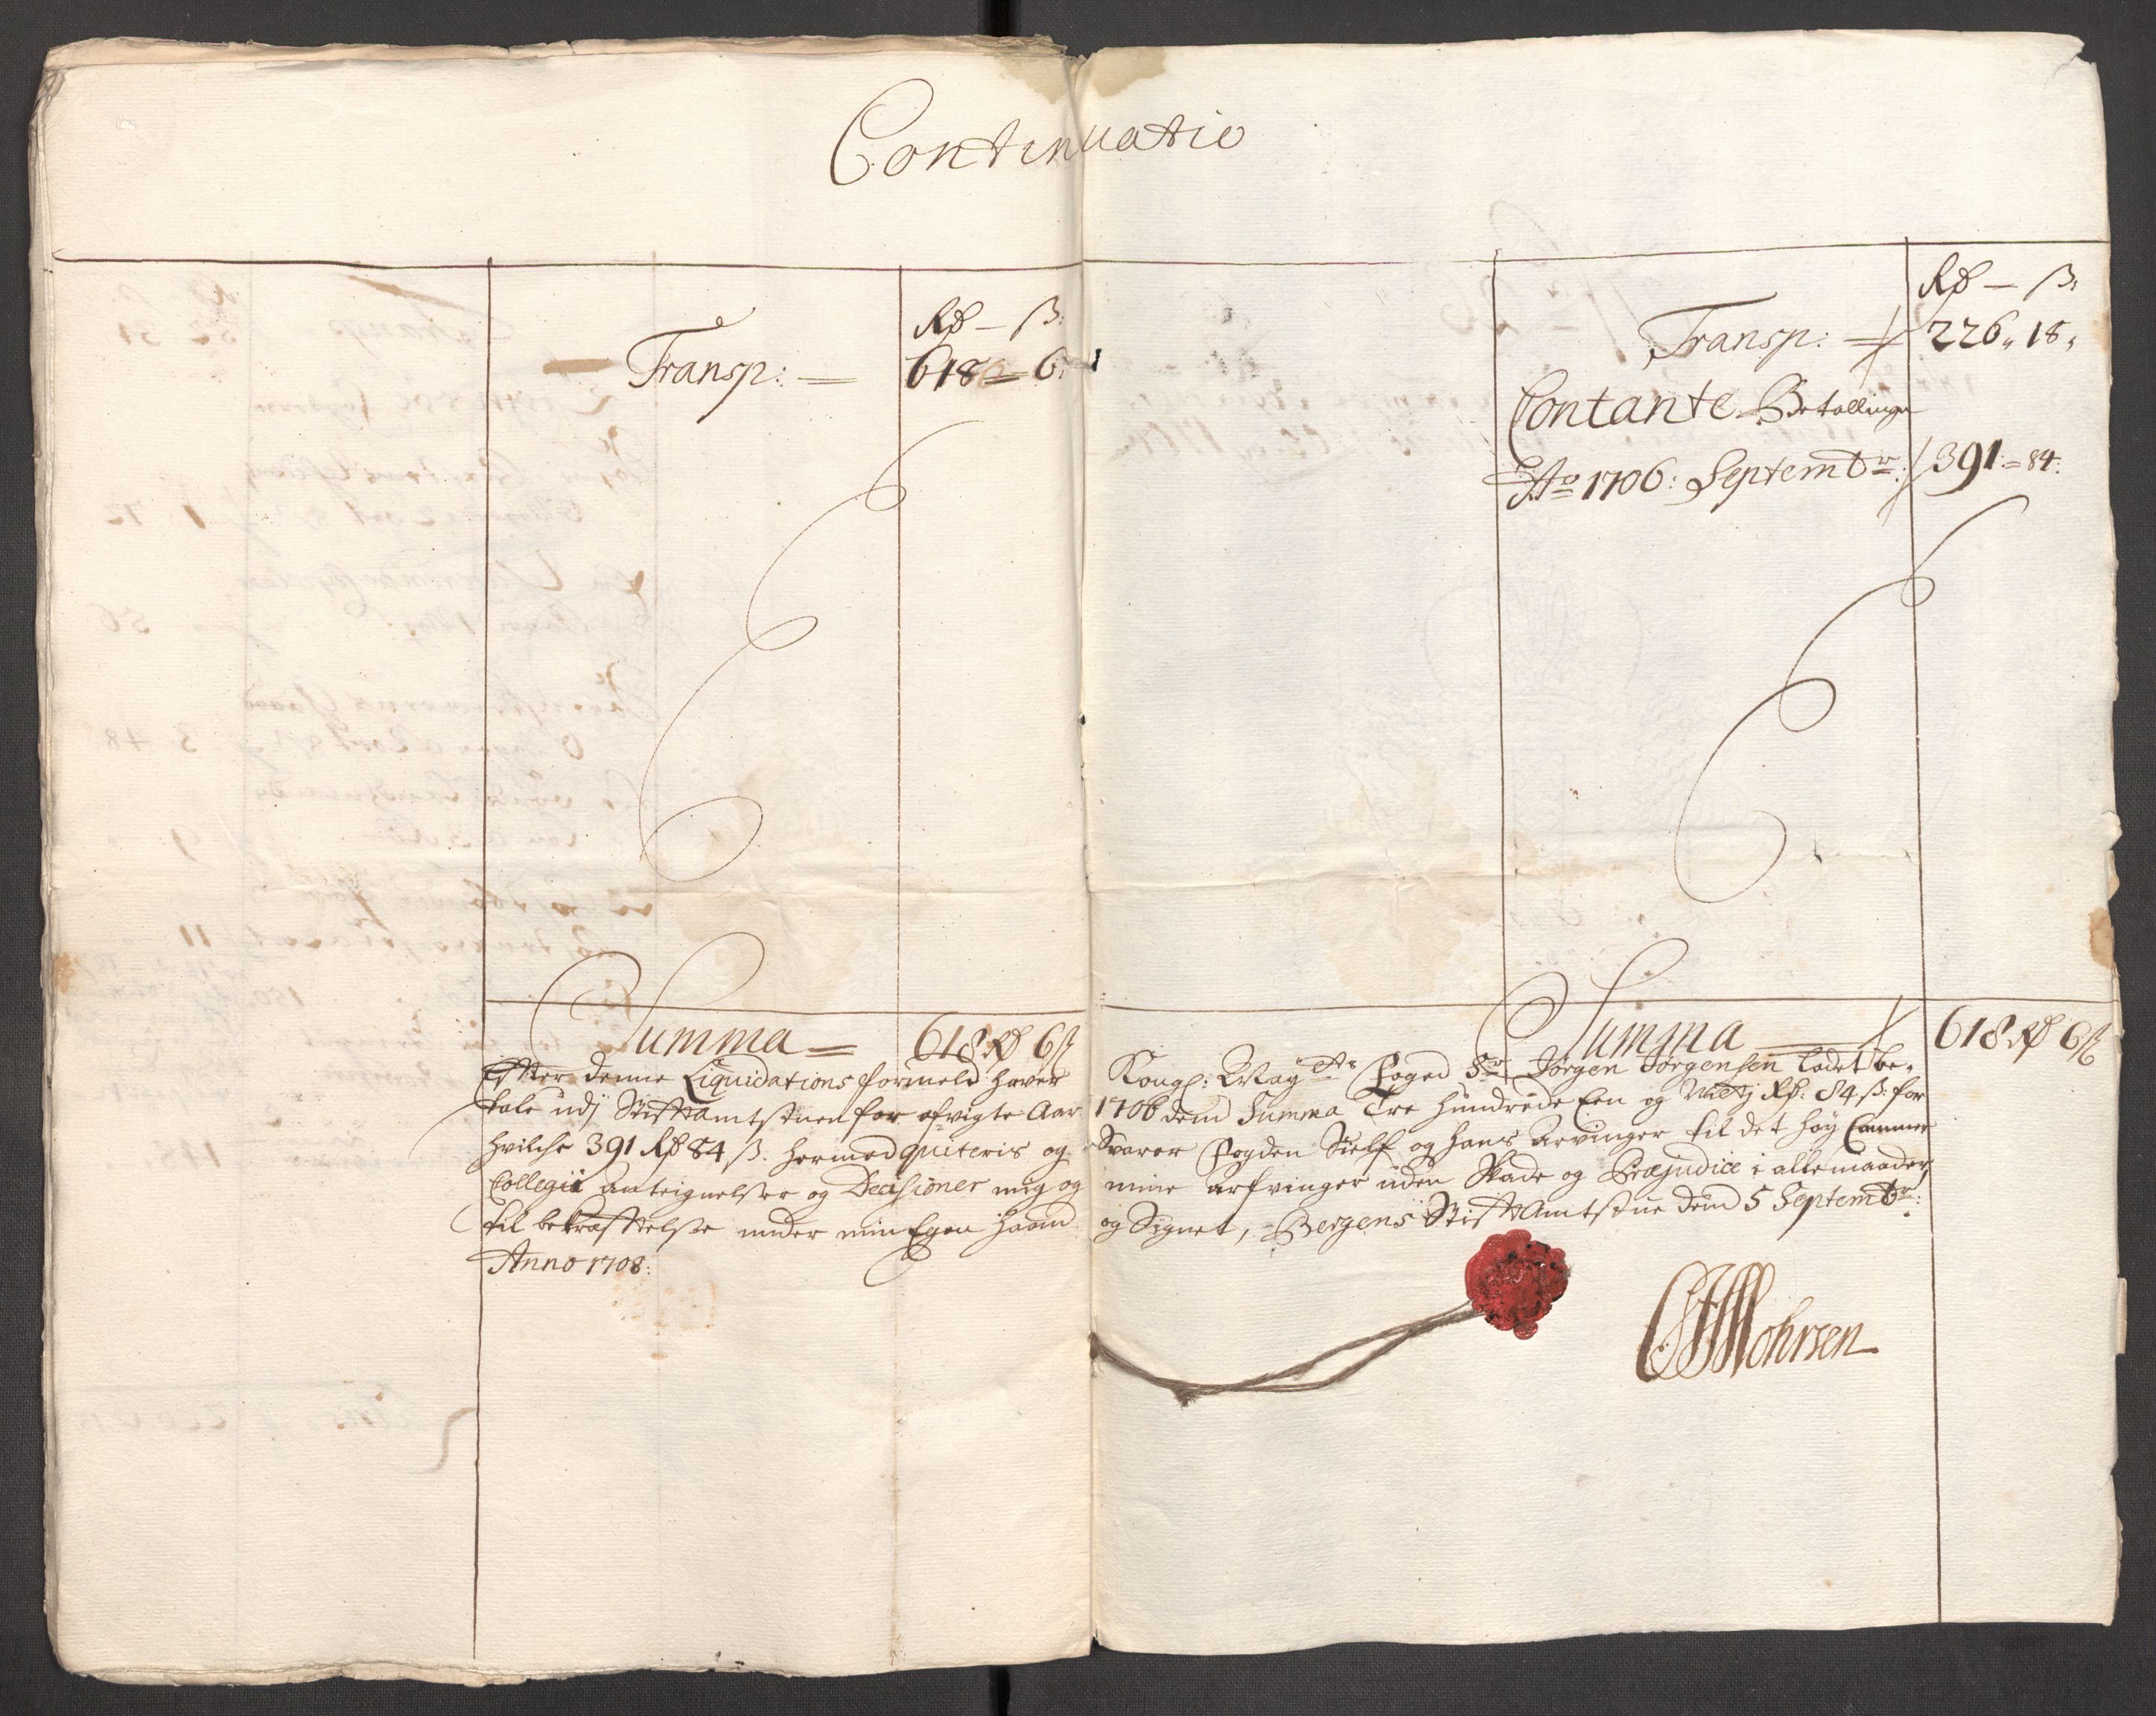 Continuatio
Rd — ß:
Transp: = 618 = 6:
Rd — ß:
Transp: = 226 „ 18 „
Contante Betallinger
Ao 1706: Septembr: 391 = 84:
Summa = 618 Rd 6 ß
Summa = 618 Rd 6 ß
Effter denne Liquidations formeld hafver Kongl: May ts Foged Sr Jørgen Jørgensen ladet be-
tale udj Stifftamtstuen for afvigte Aar 1706 dend Summa Tre Hundrede Een og Nietj Rd: 84 ß: for
hvilche 391 Rd 84 ß. hermed quiteris og Svarer Fogden Sielf og hans Arvinger til det høy Cammer
Collegii anteignelser og Decisioner mig og mine arfvinger uden Skade og Præjudice i alle maader,
til bekræfftelse under min Egen Haand og Signet, Bergens Stifft Amtstue dend 5 Septembr:
Anno 1708:
Mohrsen